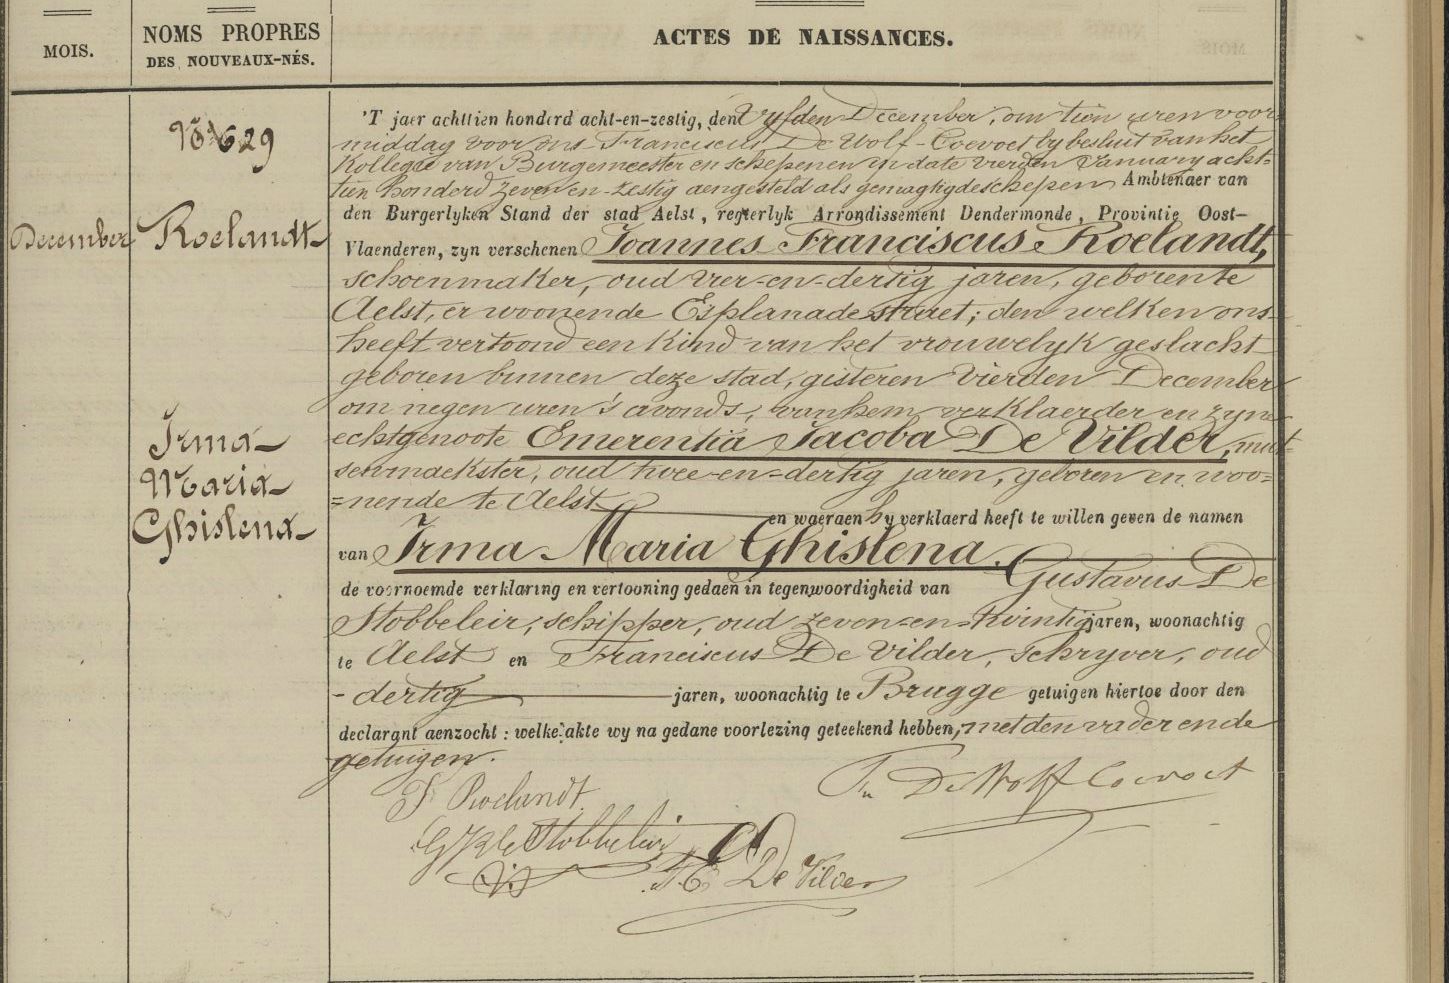 MOIS.
NOMS PROPRES
DES NOUVEAUX-NÉS.
ACTES DE NAISSANCES.
December
N° 629
Roelandt
Irma
Maria
Ghislena
'T jaer achttien honderd acht-en-zestig, den Vyfden December, om tien uren voor-
middag voor ons Franciscus De Wolf-Coevoet by besluit van het
Kollegie van Burgemeester en schepenen in date vierden January acht-
tien honderd zeven-en-zestig aengesteld als gemagtigde schepen Ambtenaer van
den Burgerlyken Stand der stad Aelst, regterlyk Arrondissement Dendermonde, Provintie Oost-
Vlaenderen, zyn verschenen Joannes Franciscus Roelandt,
schoenmaker, oud vier-en-dertig jaren, geboren te
Aelst, er woonende Esplanadestraet; den welken ons
heeft vertoond een Kind van het vrouwelyk geslacht
geboren binnen deze stad, gisteren vierden December
om negen uren 's avonds, van hem verklaerder en zyne
echtgenoote Emerentia Jacoba De Vilder, mut-
senmaekster, oud twee-en-dertig jaren, geboren en woo-
=nende te Aelst en waeraen hy verklaerd heeft te willen geven de namen
van Irma Maria Ghislena.
de voornoemde verklaring en vertooning gedaen in tegenwoordigheid van Gustavus De
Stobbeleir, schipper, oud zeven-en-twintig jaren, woonachtig
te Aelst en Franciscus De Vilder, schryver, oud
- dertig jaren, woonachtig te Brugge getuigen hiertoe door den
declarant aenzocht : welke akte wy na gedane voorlezing geteekend hebben, met den vader en de
getuigen.
F Roelandt
Fn De Wolf Coevoet
De Stobbeleir
De Vilder